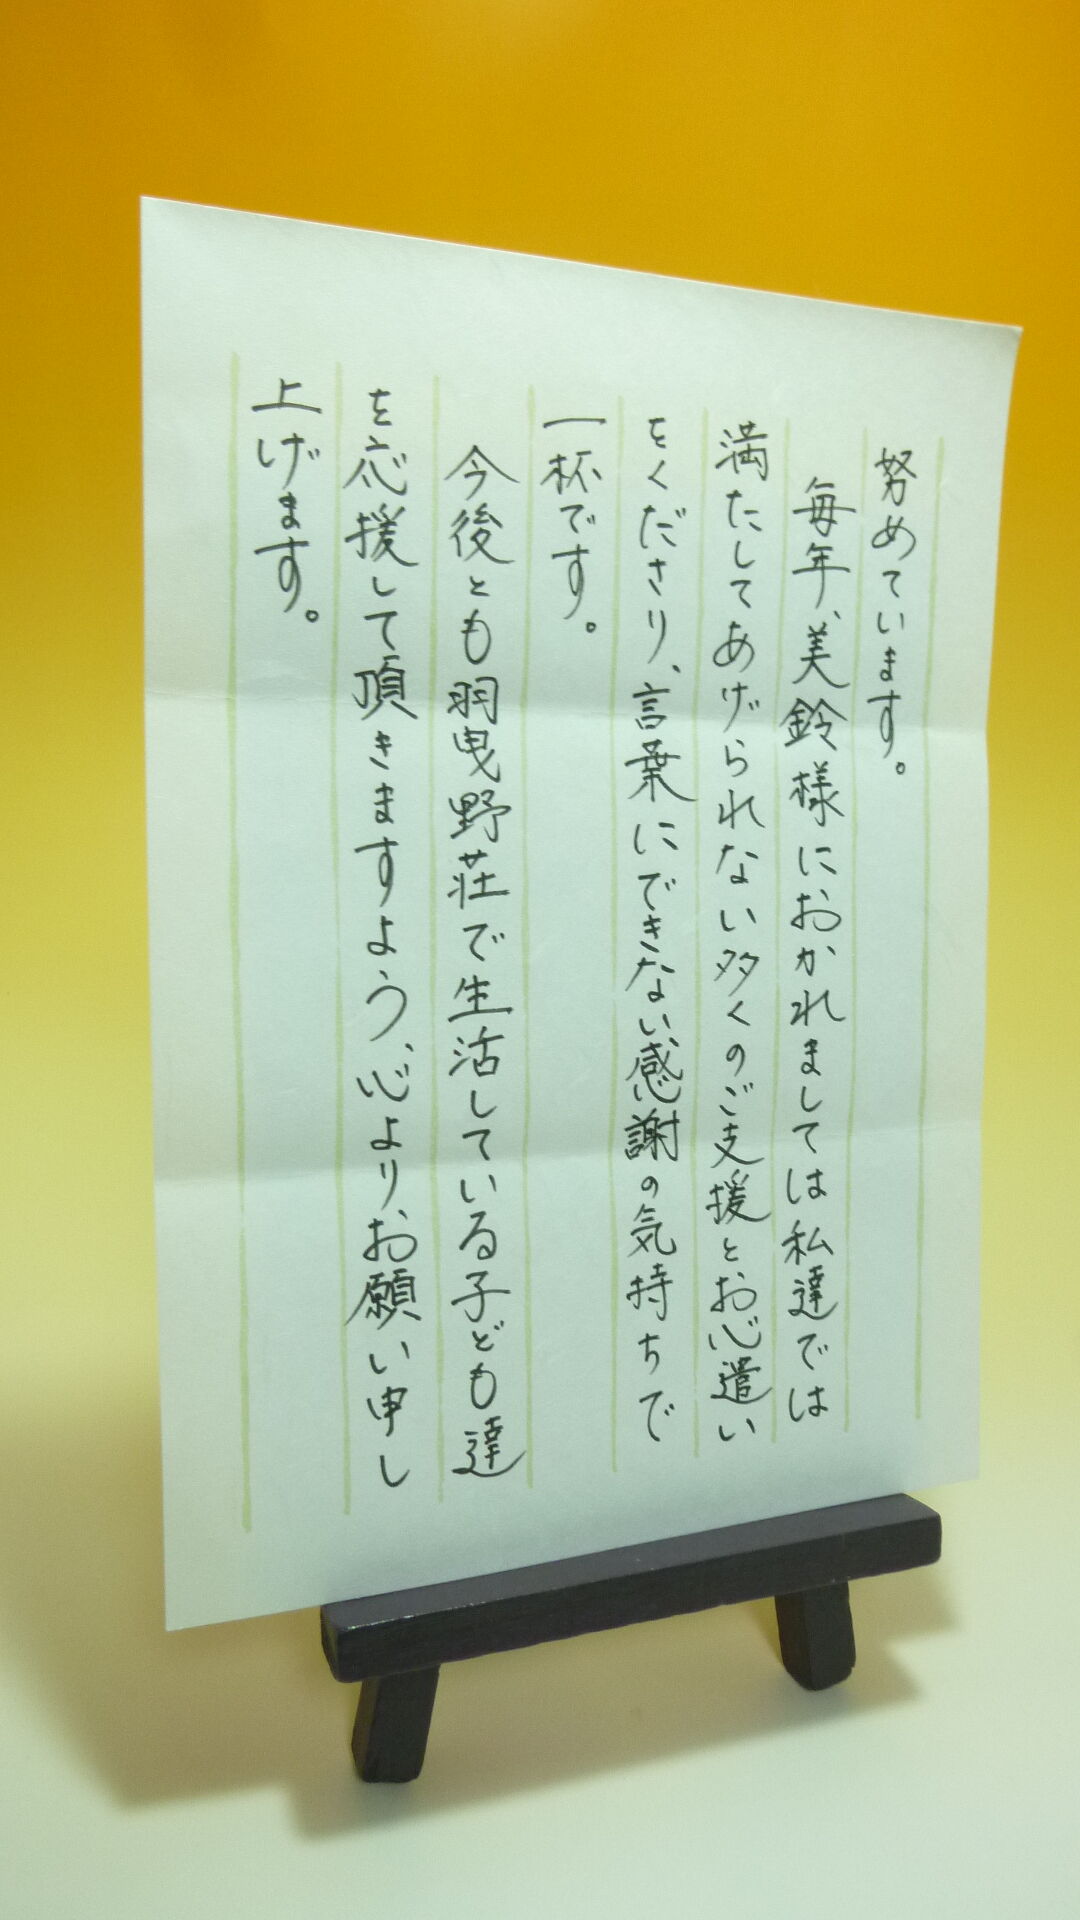 努めています。
毎年、美鈴様におかれましては私達では
満たしてあげられない多くのご支援とお心遣い
をくださり、言葉にできない感謝の気持ちで
一杯です。
今後とも羽曳野荘で生活している子ども達
を応援して頂きますよう、心より、お願い申し
上げます。